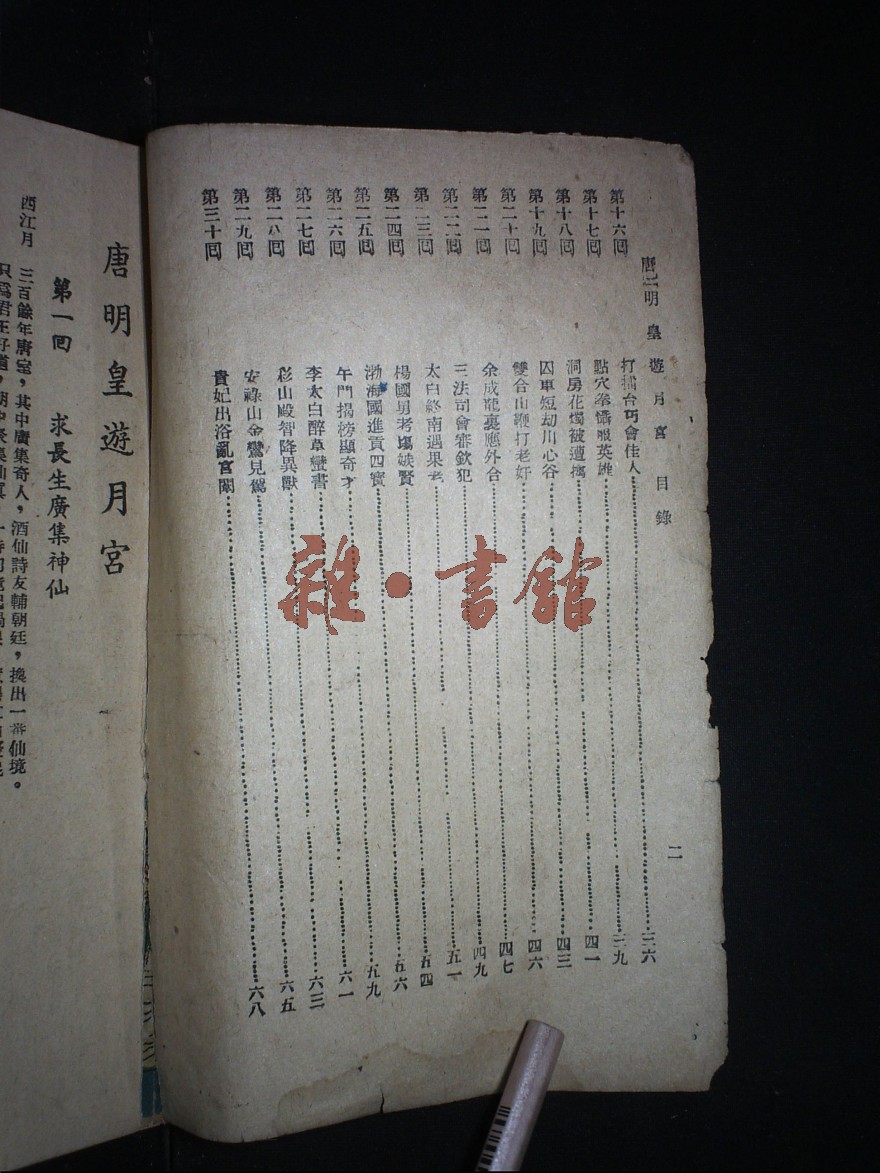 唐明皇遊月宮 目錄 二
第十六回 打擂台巧會佳人 三六
第十七回 點穴拳懾服英雄 三九
第十八回 洞房花燭被遭擒 四一
第十九回 囚車短劫川心谷 四三
第二十回 雙合山鞭打老奸 四六
第二一回 余成龍裏應外合 四七
第二二回 三法司會審欽犯 四九
第二三回 太白終南遇果老 五一
第二四回 楊國舅考塲嫉賢 五四
第二五回 渤海國進貢四寳 五六
第二六回 午門揭榜顯奇才 五九
第二七回 李太白醉草蠻書 六一
第二八回 彩山殿智降異獸 六三
第二九回 安祿山金鑾見駕 六五
第三十回 貴妃出浴亂宮闈 六八
唐明皇遊月宮
第一回 求長生廣集神仙
西江月 三百餘年唐室，其中廣集奇人，酒仙詩友輔朝廷，換出一番仙境。
只爲君王好道，朝中
雜·書館